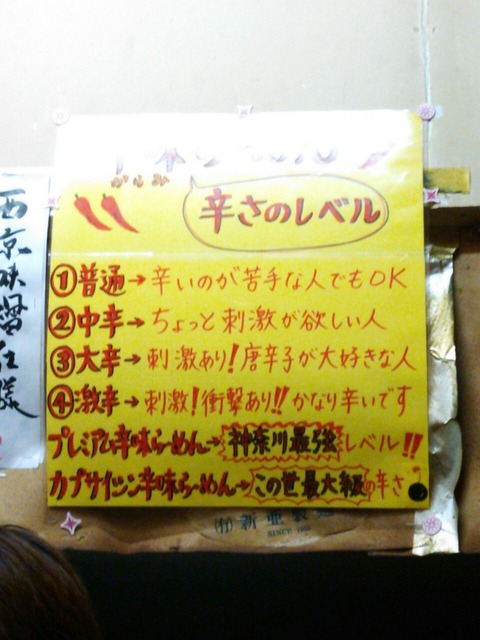 からみ
辛さのレベル
①普通→辛いのが苦手な人でもOK
②中辛→ちょっと刺激が欲しい人
③大辛→刺激あり!唐辛子が大好きな人
④激辛→刺激!衝撃あり!!かなり辛いです
プレミアム辛味らーめん→神奈川最強レベル!!
カプサイシン辛味らーめん→この世最大級の辛さ
西京味噌仕様
(有)新亜製
SINCE